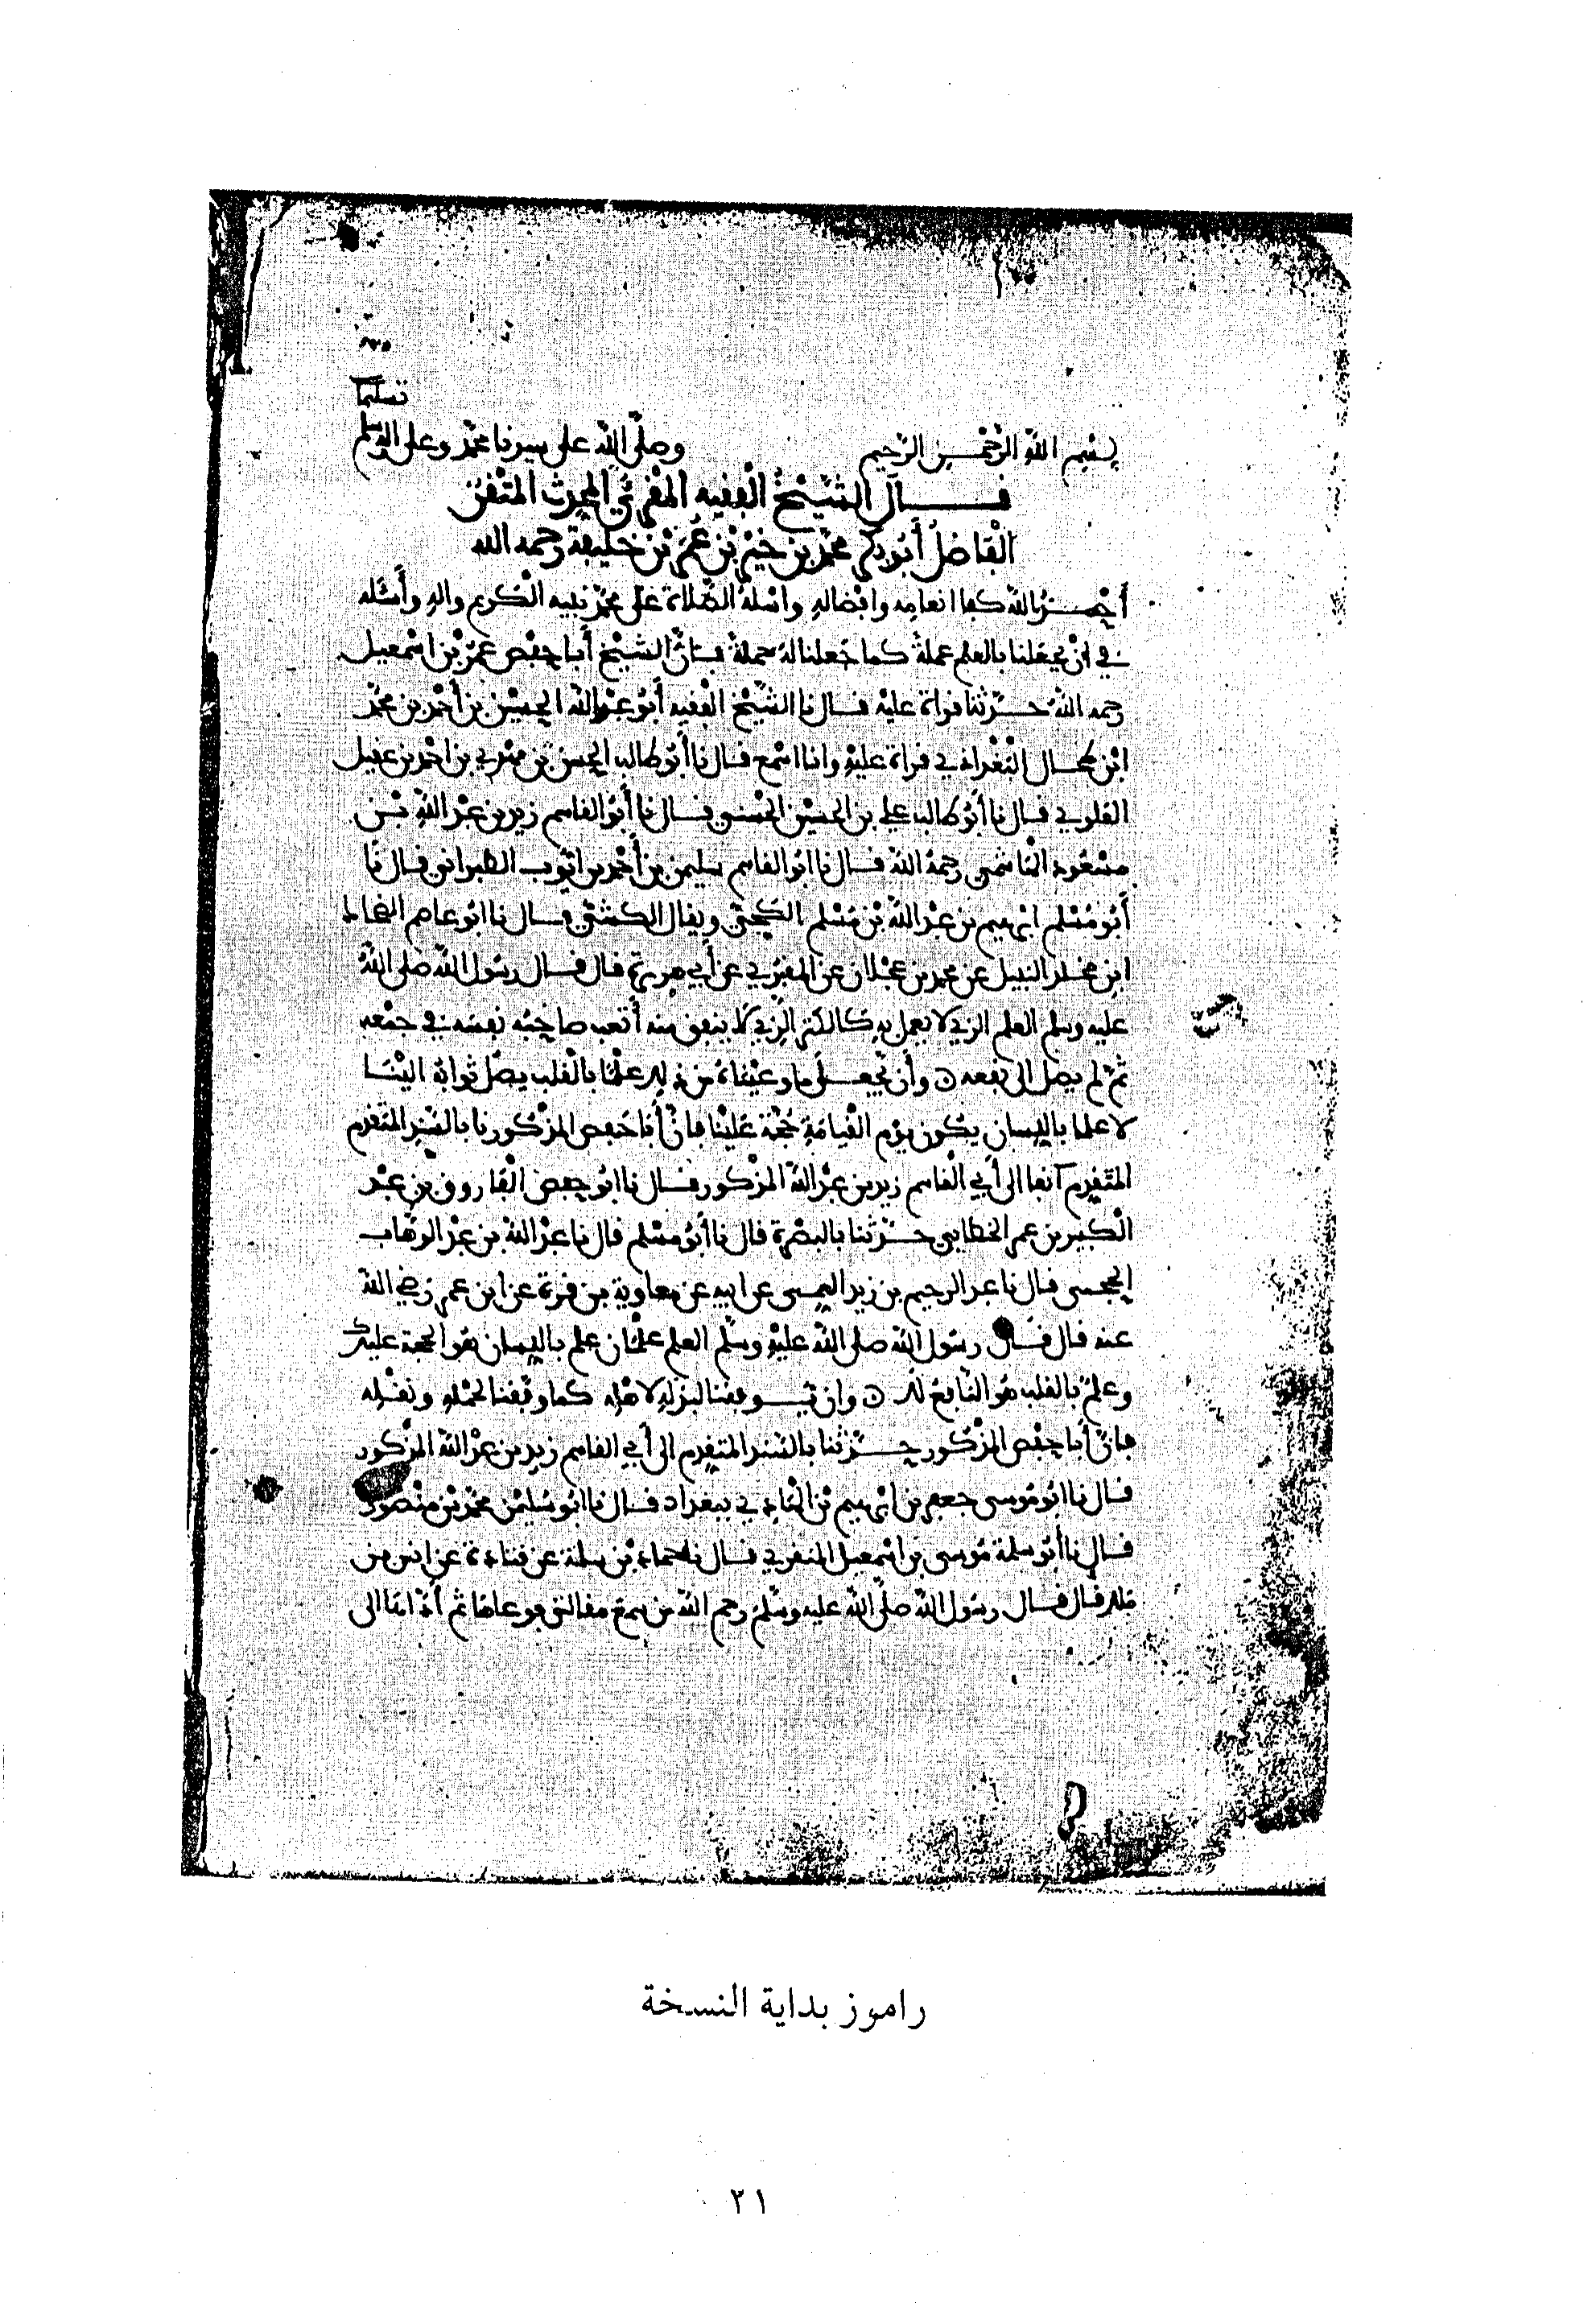 تسليما
بسم الله الرحمن الرحيم وصلى الله على سيدنا محمد وعلى اله وسلم
قال الشيخ الفقيه المقرئ المحدث المتقن
الفاضل أبو بكر محمد بن خير بن عمر بن خليفة رحمه الله
أحمد الله كفا انعامه وافضاله واسله الصلاة على محمد نبيه الكريم واله وأسئله
في ان يجعلنا بالعلم عملة كما جعلنا له حملة فان الشيخ أبا حفص عمر بن اسمعيل
رحمه الله حدثنا قراة عليه قال نا الشيخ الفقيه أبو عبد الله الحسين بن أحمد بن محمد
ابن البغدادي قراة عليه وانا اسمع قال نا أبو طالب الحسن بن مهدي بن احمد بن عقيل
العلوي قال نا أبو طالب علي بن الحسين الحسني قال نا أبو القاسم زيد بن عبد الله بن
مسعود الهاشمي رحمه الله قال نا ابو القاسم سليمن بن أحمد بن ايوب الطبراني قال نا
أبو مسلم ابرهيم بن عبد الله بن مسلم الكجي ويقال الكشي قال نا ابو عاصم الضحاك
ابن مخلد النبيل عن محمد بن عجلان عن المقبري عن أبي هريرة قال قال رسول الله صلى الله
عليه وسلم العلم الذي لا يعمل به كالكنز الذي لا ينفق منه أتعب صاحبه نفسه في جمعه
ثم لم يصل الى نفعه وأن يجعل ما وعيناه من ذلك علما بالقلب يصل ثوابه الينا
لا علما باللسان يكون يوم القيامة حجة علينا فان أبا حفص المذكور نا بالسند المتقدم
المتقدم آنفا الى أبي القاسم زيد بن عبد الله المذكور قال نا ابو حفص الفاروق بن عبد
الكبير بن عمر الخطابي حدثنا بالبصرة قال نا أبو مسلم قال نا عبد الله بن عبد الوهاب
الحجبي قال نا عبد الرحيم بن زيد العمي عن ابيه عن معاوية بن قرة عن ابن عمر رضي الله
عنه قال قال رسول الله صلى الله عليه وسلم العلم علمان علم باللسان هو الحجة عليك
وعلم بالقلب هو النافع لك وان يوفقنا لبذله لاهله كما وفقنا لحمله ونقله
فان أبا حفص المذكور حدثنا بالسند المتقدم الى أبي القاسم زيد بن عبد الله المذكور
قال نا ابو موسى جعفر بن ابرهيم بن ببغداد قال نا ابو سليمن محمد بن منصور
قال نا أبو سلمة موسى بن اسمعيل المنقري قال نا حماد بن سلمة عن قتادة عن انس بن
ملك قال قال رسول الله صلى الله عليه وسلم رحم الله من سمع مقالتي فوعاها ثم أداها الى
راموز بداية النسخة
٢١